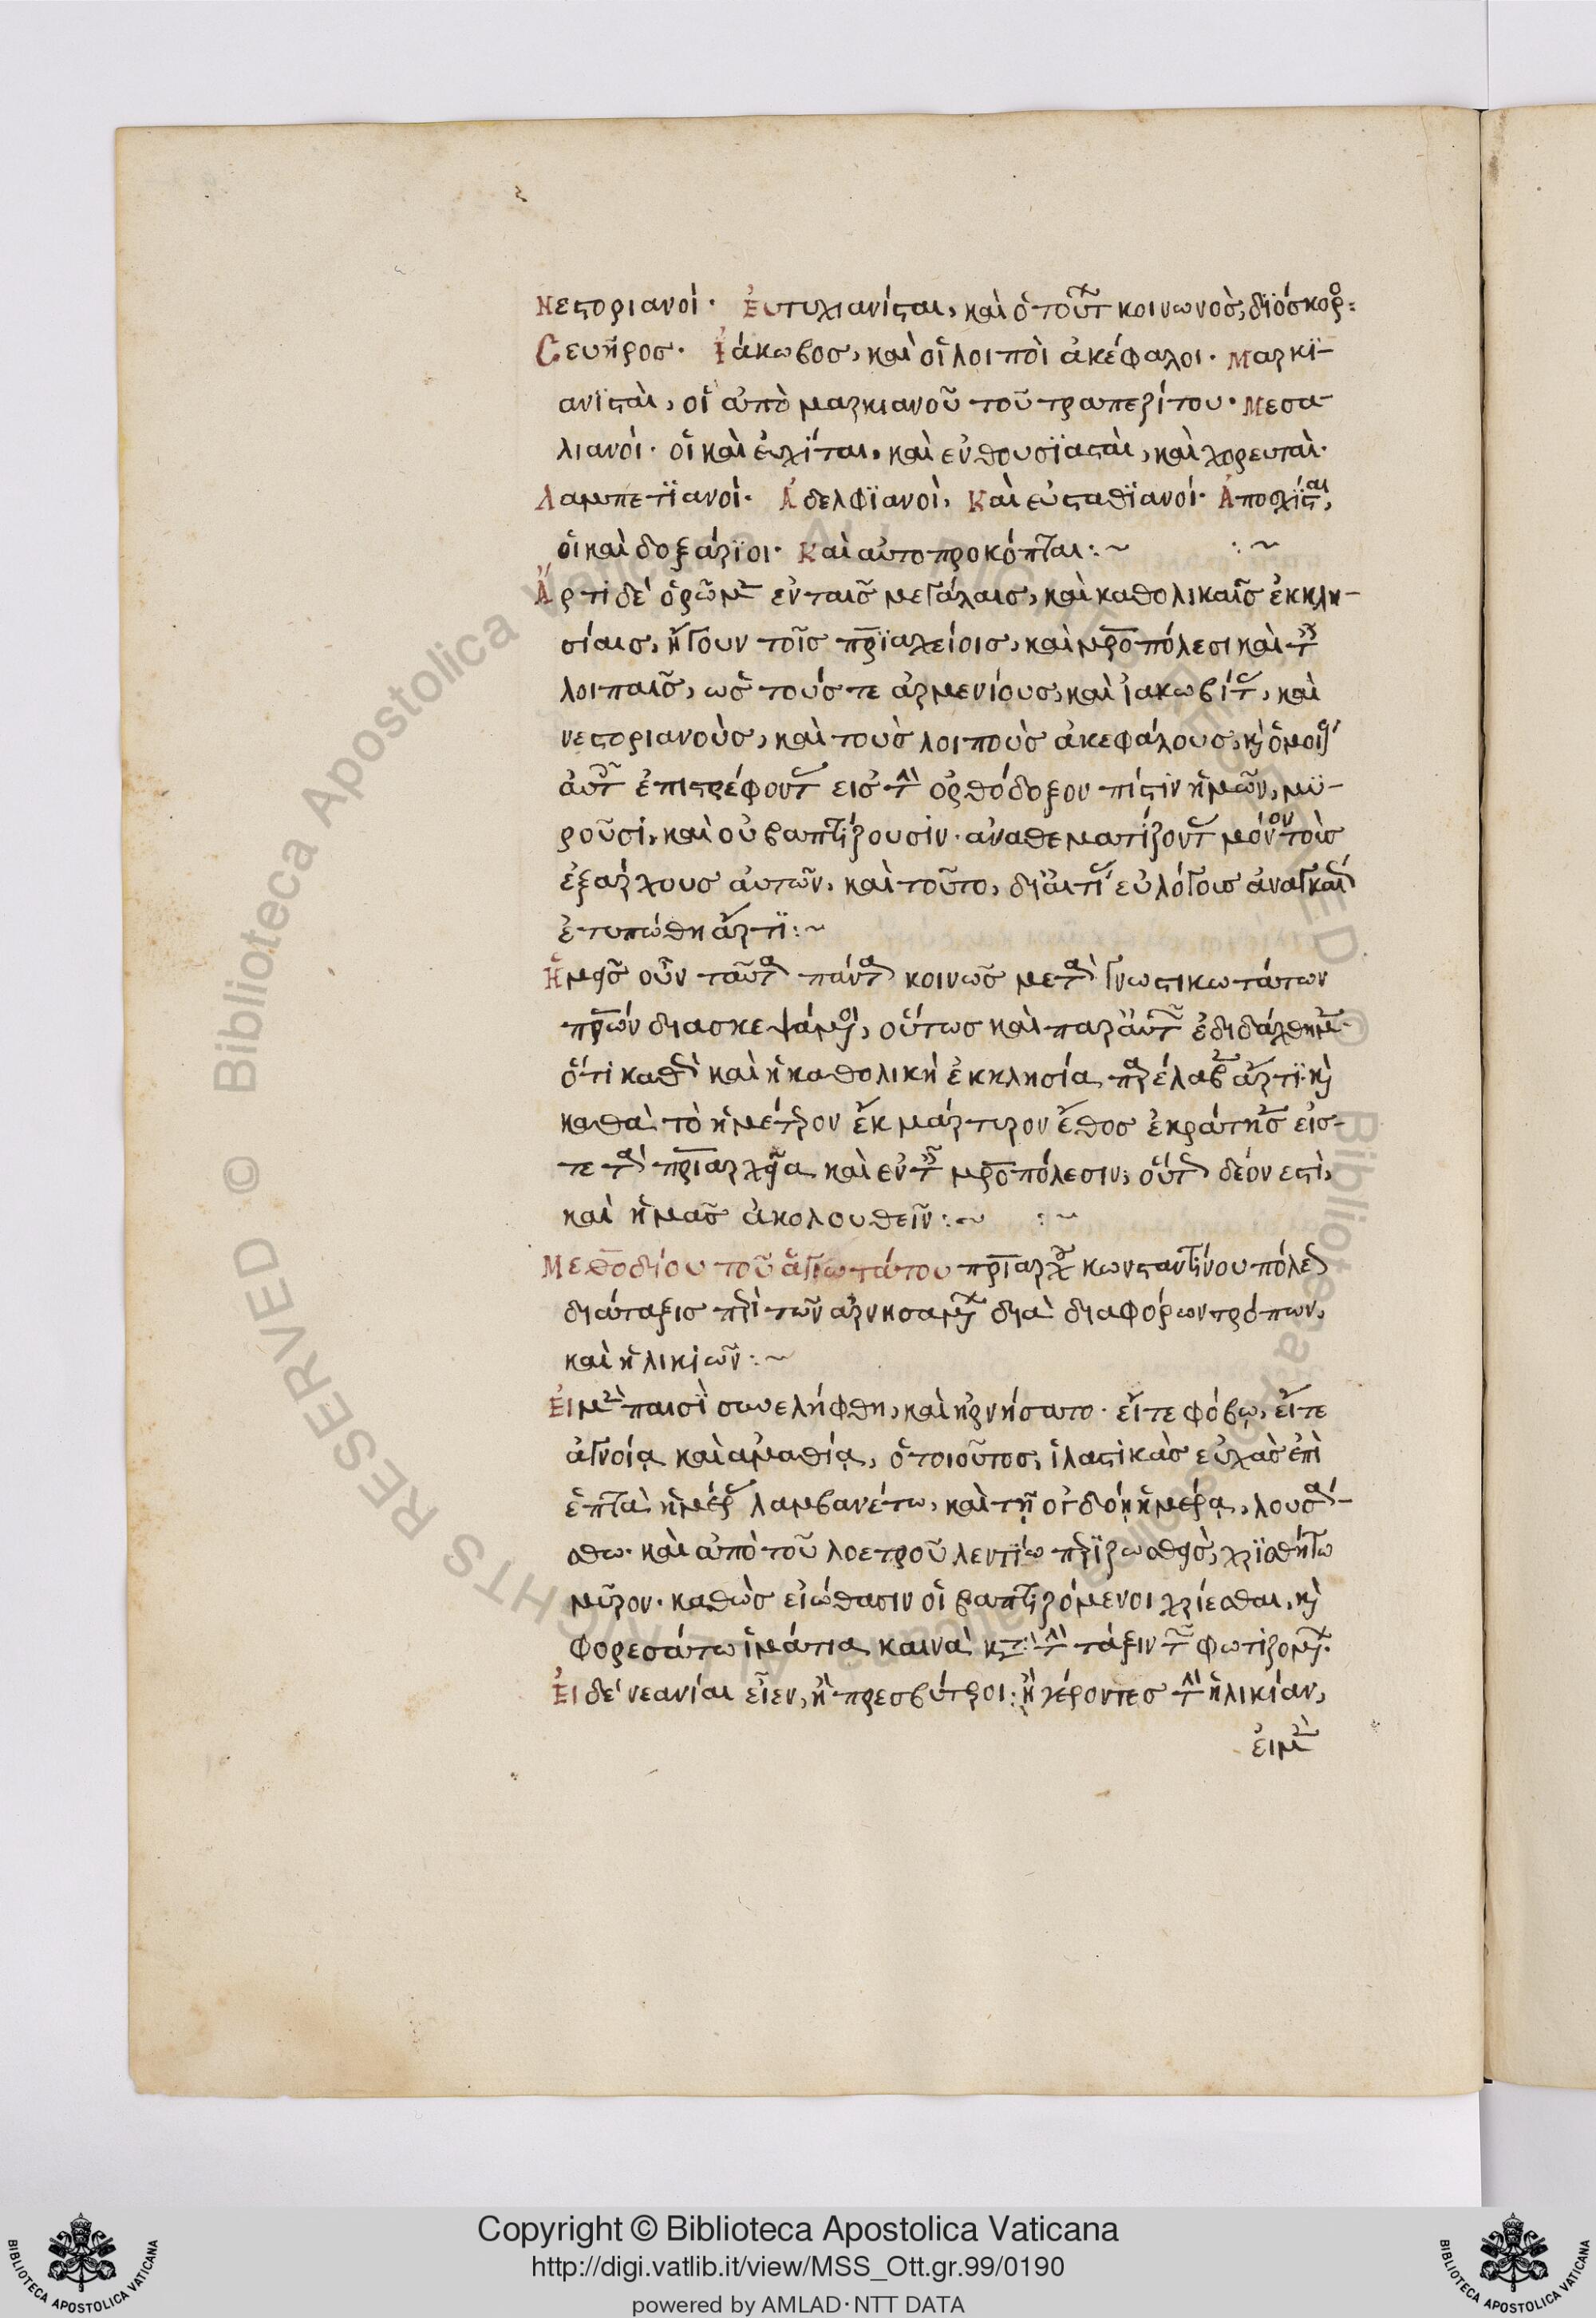 Νεστοριανοί· Ἐυτυχιανίσται, καὶ ὁ τούτ κοινωνὸς, διόσκορ:
Σευῆρος· Ἰάκωβος, καὶ οἱ λοιποὶ ἀκέφαλοι· Μαρκϊ-
ανϊσταὶ, οἱ ἀπὸ μαρκιανοῦ τοῦ τραπεζίτου· Μεσα-
λιανοί· οἱ καὶ ἐυχίται, καὶ ἐνθουσϊασταὶ, καὶ χορευταὶ·
Λαμπετϊανοὶ· Ἀδελφϊανοὶ, Καὶ εὐσταθϊανοί· Ἀποσχίσται,
οἱ καὶ δοξάρϊοι· Καὶ αὐτοπροκόπται:~ :~
Ἄρτι δὲ ὁρῶμεν ἐν ταῖς μεγάλαις, καὶ καθολικαῖς ἐκκλη-
σίαις, ἤγουν τοῖς πρϊαρχείοις, καὶ μροπόλεσι καὶ τ
λοιπαῖς, ὡς τούς τε ἀρμενίους, καὶ ἰακωβίτ, καὶ
νεστοριανοὺς, καὶ τοὺς λοιποὺς ἀκεφάλους, κὶ ὁμοί
ἀυτ ἐπιστρέφοντ εἰς τὴν ὀρθόδοξον πίστιν ἡμῶν, μϋ-
ροῦσι, καὶ οὐ βαπτίζουσιν· ἀναθεματίζοντ μόνον τοὺς
ἐξάρχους ἀυτῶν, καὶ τοῦτο, δι' ἀιτί εὐλόγοις ἀναγκαί
ἐτυπώθη ἄρτϊ:~
Ἡμεῖς οὖν ταῦτα πάντα κοινῶς μετὰ γνωστικωτάτων
πρων διασκεψάμενοι, οὕτως καὶ παρ' ἀυτ ἐδιδάχθημεν·
ὅτι καθὰ καὶ ἡ καθολικὴ ἐκκλησία παρέλαβ ἄρτϊ· κὶ
καθὰ τὸ ἡμέτερον ἐκ μάρτυρον ἔθος ἐκράτησ εἰσ-
τε τὰ πριαρχεῖα καὶ ἐν τ μροπόλεσιν, οὕτω δέον ἐστὶ,
καὶ ἡμᾶς ἀκολουθεῖν:~ :~
Μεθοδίου τοῦ ἁγιωτάτου πριάρχ κωνσταντίνουπόλε
διάταξις περὶ τῶν ἀρνησαμ διὰ διαφόρων τρόπων,
καὶ ἡλικιῶν:~
Ἐι μὲν παισὶ συνελήφθη, καὶ ἠρνήσατο· εἴτε φόβῳ, εἴτε
ἀγνοίᾳ καὶ ἀμαθίᾳ, ὁ τοιοῦτος, ἱλαστικὰς εὐχὰς ἐπὶ
ἑπτὰ ἡμέρ λαμβανέτω, καὶ τῇ ὀγδόῃ ἡμέρᾳ, λουσά-
σθω· καὶ ἀπὸ τοῦ λοετροῦ λεντίω περϊζωσθεὶς, χρϊσθήτω
μύρον· καθὼς εἰώθασιν οἱ βαπτιζόμενοι χρίεσθαι, κὶ
φορεσάτω ἱμάτια καινὰ κτ τὴν τάξιν τ φωτιζομ·
Ἐι δὲ νεανίαι εἶεν, ἢ πρεσβύτεροι: ἢ γέροντες τὴν ἡλικίαν,
ἐι μὲν
Copyright © Biblioteca Apostolica Vaticana
http://digi.vatlib.it/view/MSS_Ott.gr.99/0190
powered by AMLAD·NTT DATA